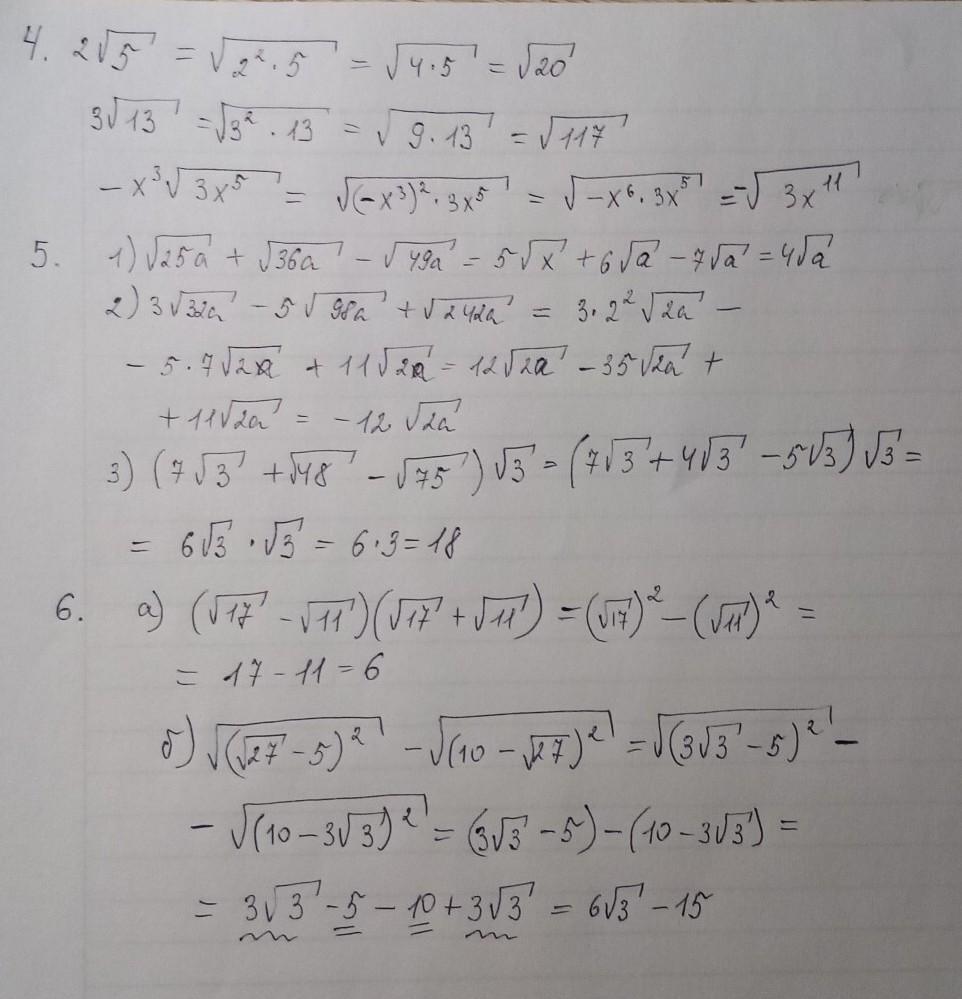 4. 2√5 = √(2² · 5) = √(4·5) = √20
3√13 = √(3² · 13) = √(9·13) = √117
-x³√(3x⁵) = √((-x³)² · 3x⁵) = √(-x⁶ · 3x⁵) = -√(3x¹¹)
5. 1) √(25a) + √(36a) - √(49a) = 5√x + 6√a - 7√a = 4√a
2) 3√(32a) - 5√(98a) + √(242a) = 3·2²√(2a) -
- 5·7√(2a) + 11√(2a) = 12√(2a) - 35√(2a) +
+ 11√(2a) = -12√(2a)
3) (7√3 + √48 - √75)√3 = (7√3 + 4√3 - 5√3)√3 =
= 6√3 · √3 = 6·3 = 18
6. а) (√17 - √11)(√17 + √11) = (√17)² - (√11)² =
= 17 - 11 = 6
б) √((√27 - 5)²) - √((10 - √27)²) = √((3√3 - 5)²) -
- √((10 - 3√3)²) = (3√3 - 5) - (10 - 3√3) =
= 3√3 - 5 - 10 + 3√3 = 6√3 - 15